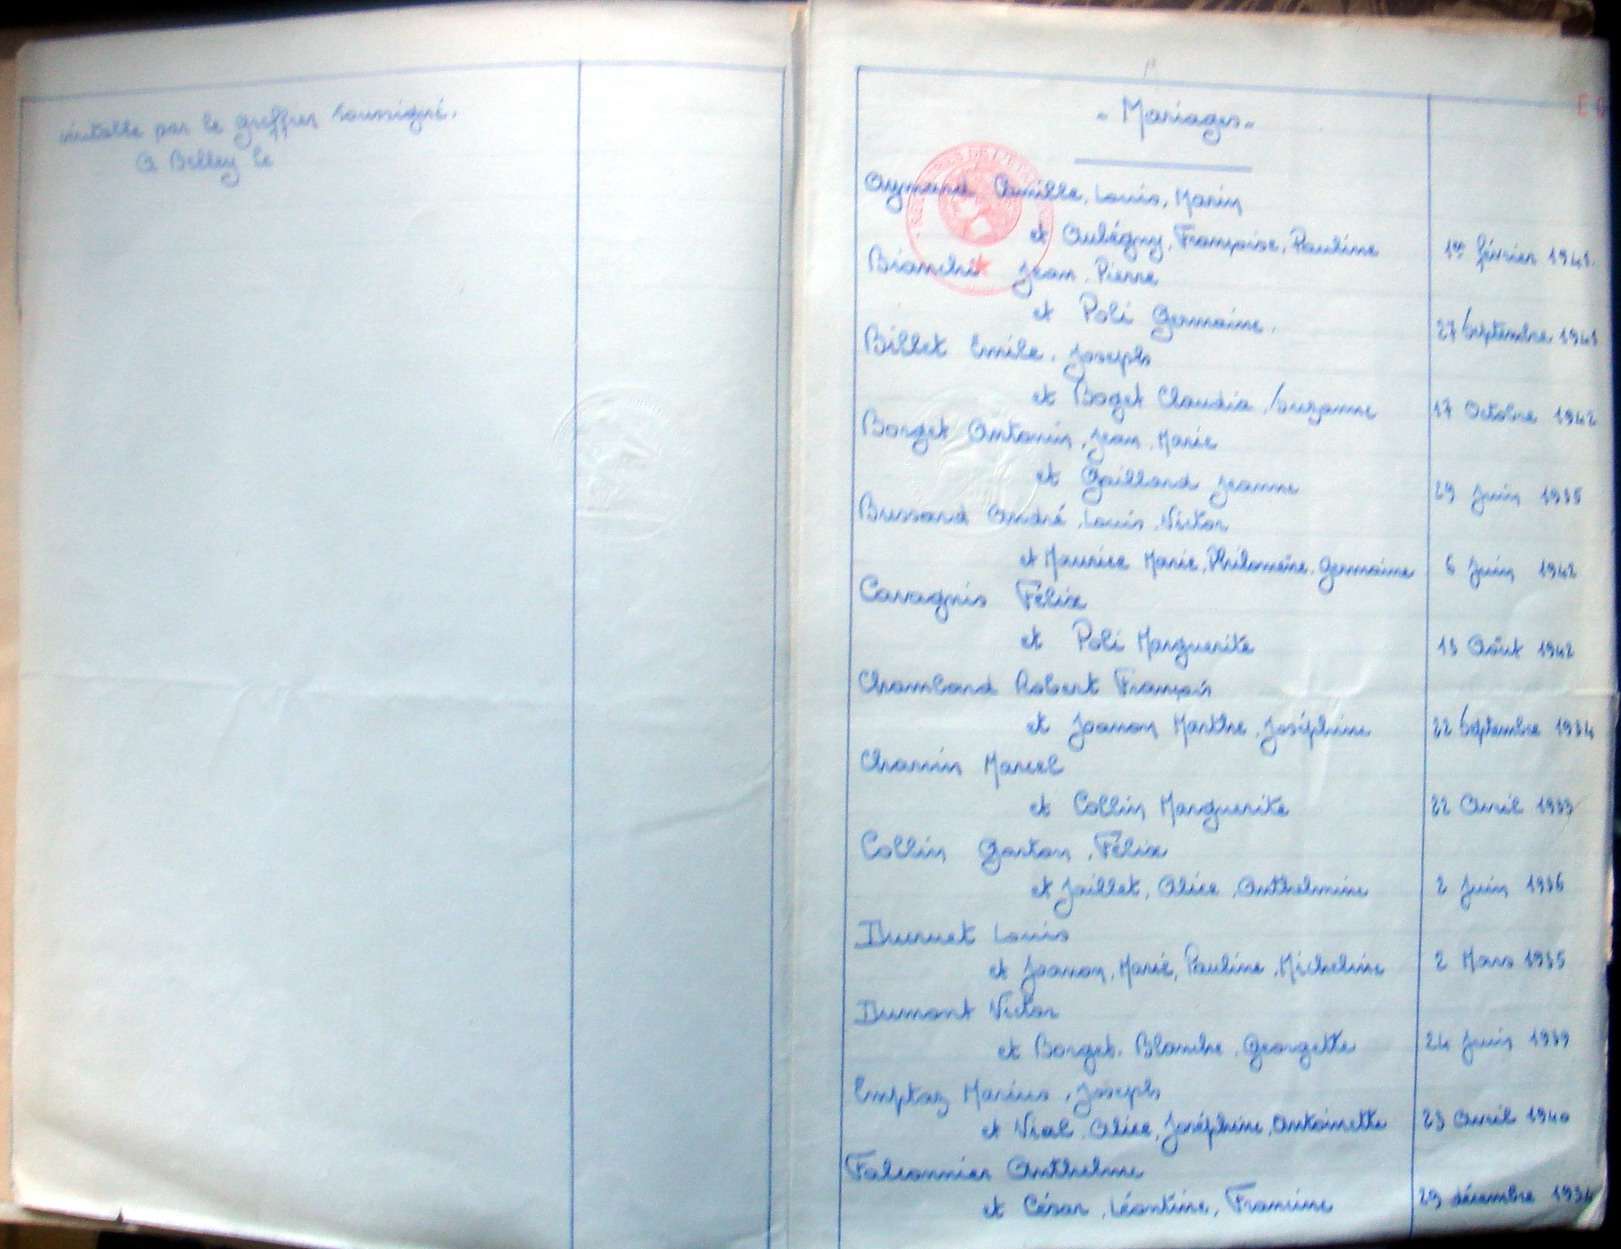 par le greffier soussigné.
A Belley le
"Mariages"
Aymard Camille, Louis, Marin
et Aubégny, Françoise, Pauline 1er février 1941.
Bianchi Jean, Pierre
et Poli Germaine. 27 Septembre 1941
Billet Emile, Joseph
et Boget Claudia, Suzanne 17 Octobre 1942
Borget Antonin, Jean, Marie
et Gaillard Jeanne 29 Juin 1935
Bussard André, Louis, Victor
et Maurice Marie, Philomène, Germaine 6 Juin 1942
Cavagnis Félix
et Poli Marguerite Août 1942
Chambard Robert François
et Joanon Marthe, Joséphine 22 Septembre 1934
Charvin Marcel
et Collin Marguerite 22 Avril 1933
Collin Gaston, Félix
et Jaillet, Alice, Anthelmine 2 Juin 1936
Ducruet Louis
et Joanon, Marie, Pauline, Micheline 2 Mars 1935
Dumont Victor
et Borget, Blanche, Georgette 24 Juin 1939
Emptaz Marius, Joseph
et Vial, Alice, Joséphine, Antoinette 23 Avril 1940
Falconnier Anthelme
et César, Léontine, Francine 29 décembre 1934